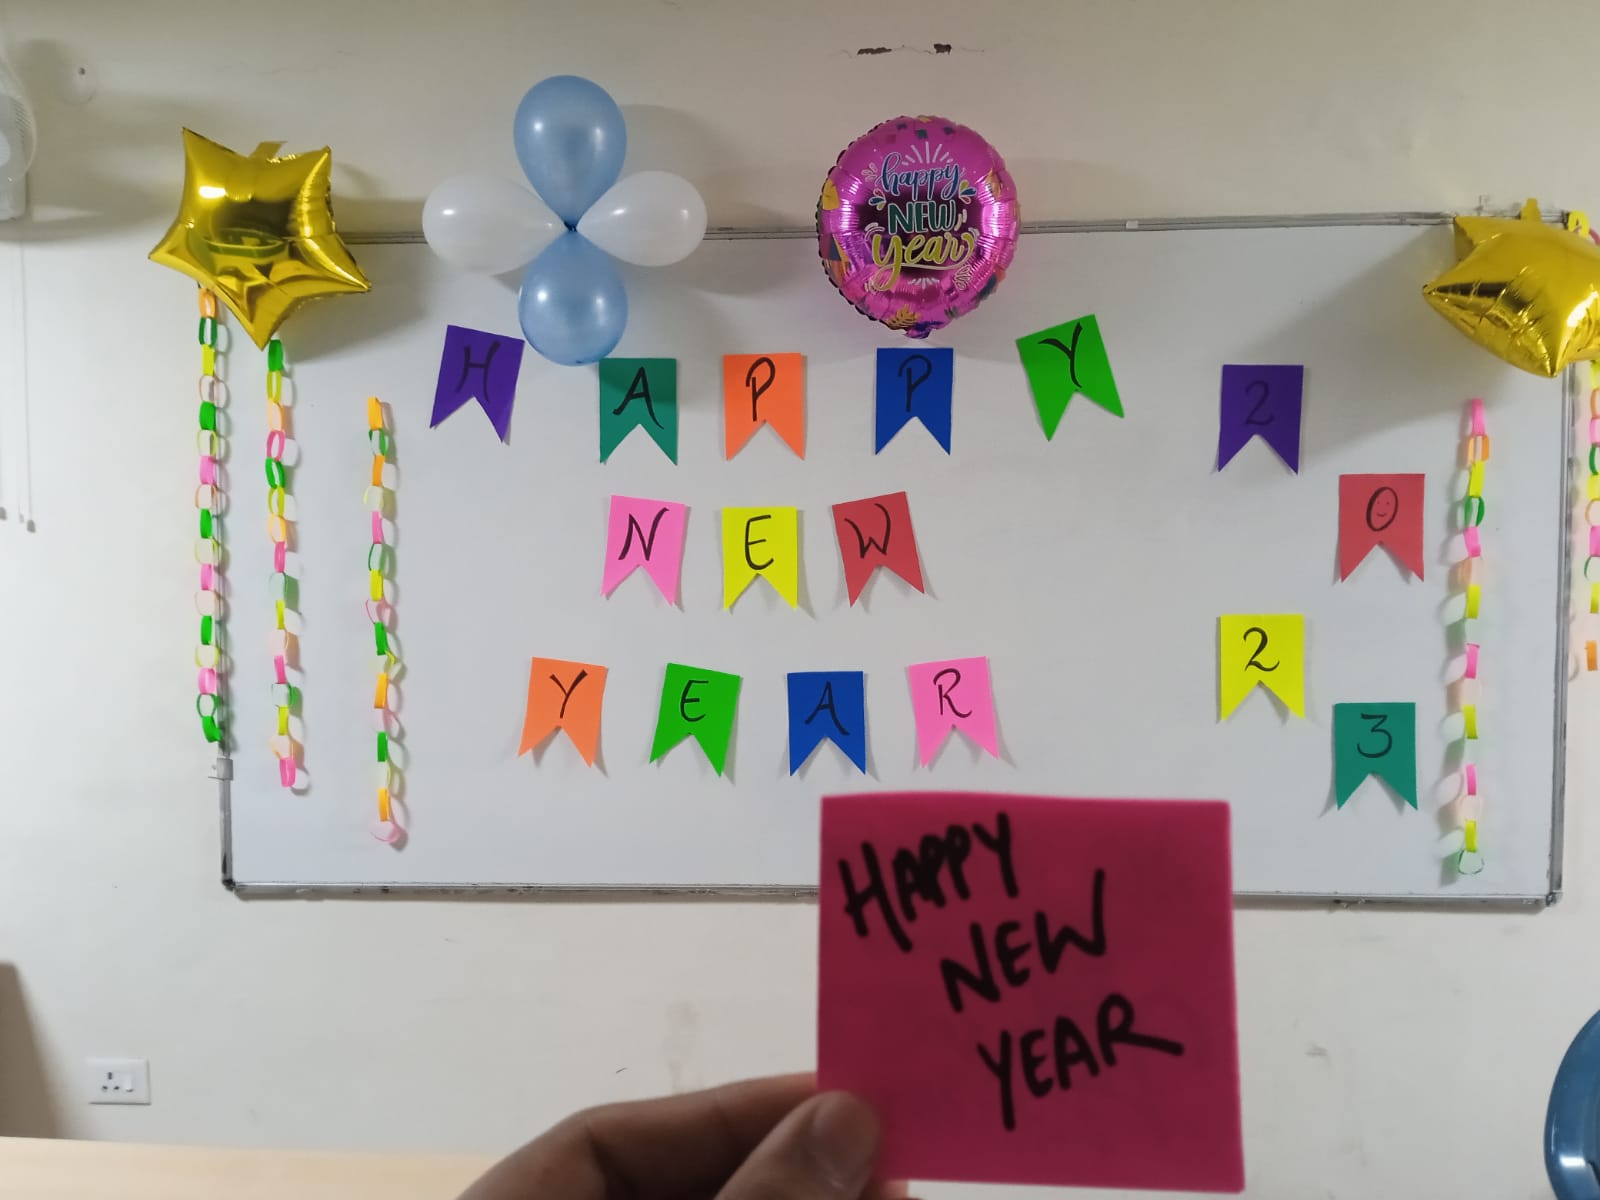 happy
NEW
year
HAPPY
NEW
YEAR
2
0
2
3
HAPPY
NEW
YEAR